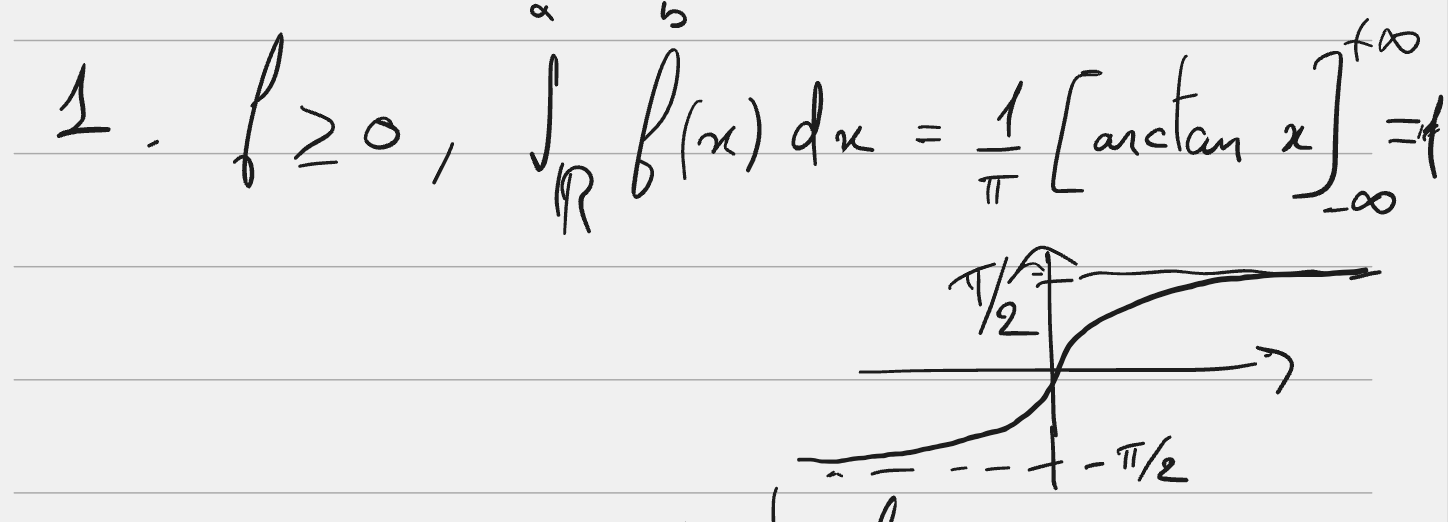 a b
1. f ≥ 0, ∫_ℝ f(x) dx = 1/π [arctan x]_{-∞}^{+∞} = 1
π/2
- π/2